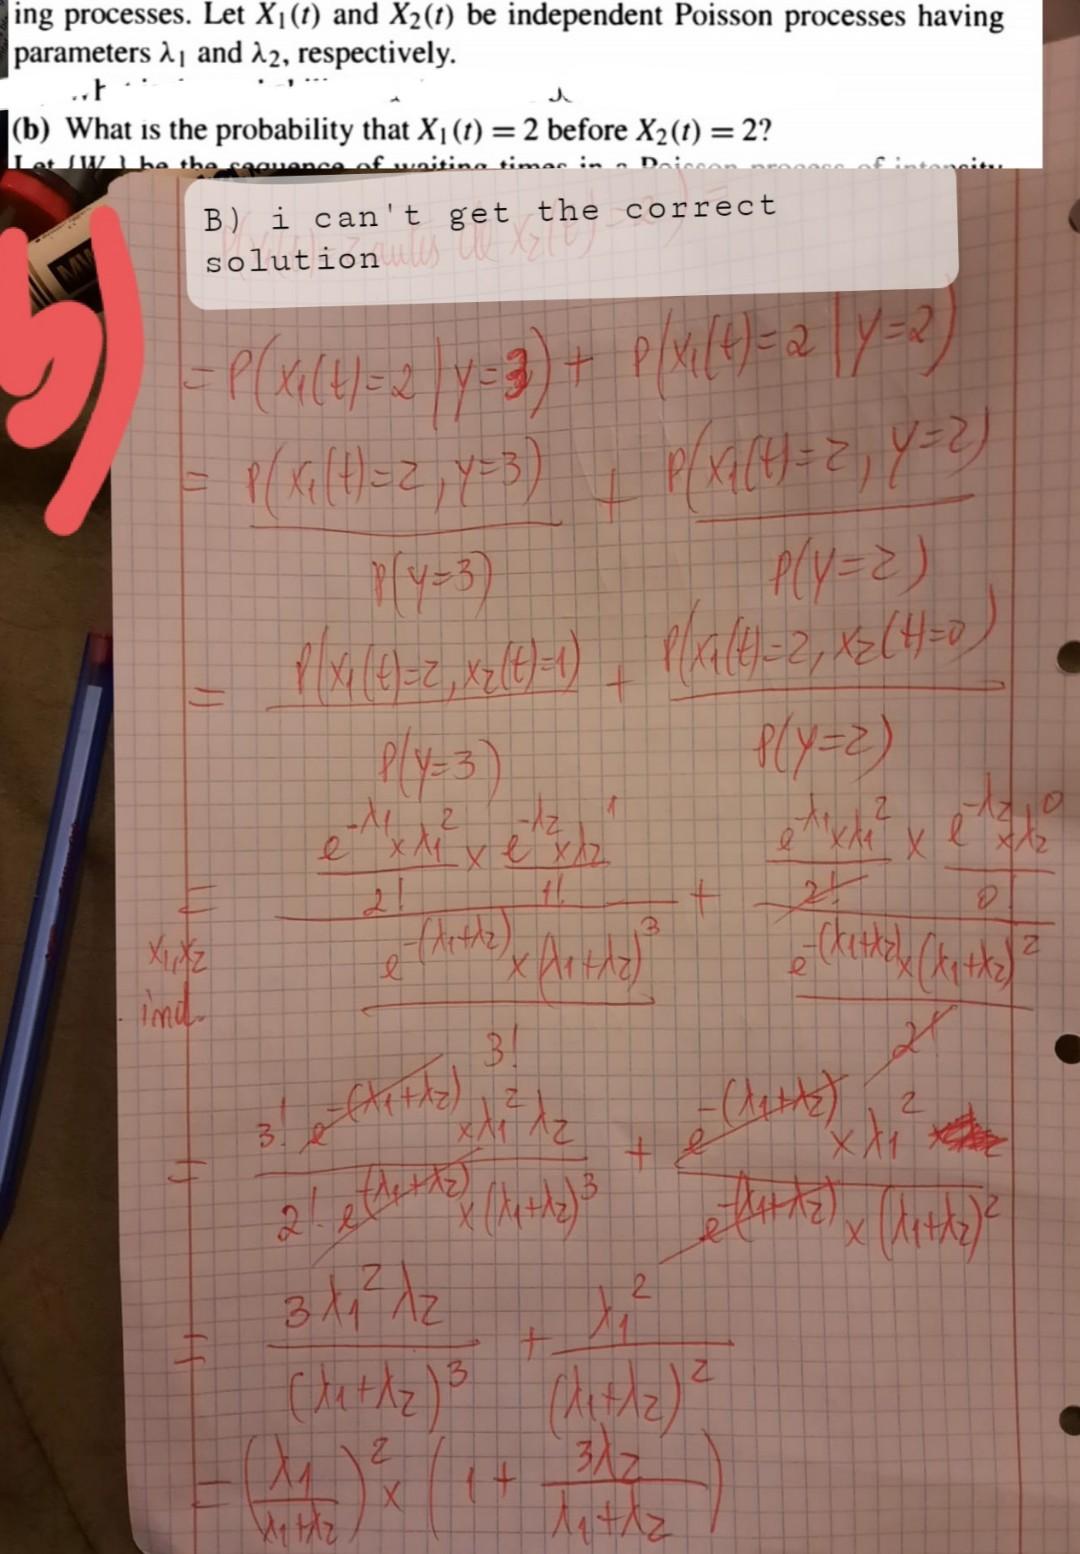 ing processes. Let X₁(t) and X₂(t) be independent Poisson processes having
parameters λ₁ and λ₂, respectively.
(b) What is the probability that X₁(t) = 2 before X₂(t) = 2?
Let {W } be the sequence of waiting times in a Poisson process of intensity
b)
B) i can't get the correct
solution
= P(X₁(t)=2 | Y=3) + P(X₁(t)=2 | Y=2)
= P(X₁(t)=2, Y=3) / P(Y=3) + P(X₁(t)=2, Y=2) / P(Y=2)
= P(X₁(t)=2, X₂(t)=1) / P(Y=3) + P(X₁(t)=2, X₂(t)=0) / P(Y=2)
X₁, X₂ ind.
= (e^-λ₁ × λ₁² / 2! × e^-λ₂ × λ₂¹ / 1!) / (e^-(λ₁+λ₂) × (λ₁+λ₂)³ / 3!) + (e^-λ₁ × λ₁² / 2! × e^-λ₂ × λ₂⁰ / 0!) / (e^-(λ₁+λ₂) × (λ₁+λ₂)² / 2!)
= 3! e^-(λ₁+λ₂) × λ₁² λ₂ / 2! e^-(λ₁+λ₂) × (λ₁+λ₂)³ + e^-(λ₁+λ₂) × λ₁² / e^-(λ₁+λ₂) × (λ₁+λ₂)²
= 3 λ₁² λ₂ / (λ₁+λ₂)³ + λ₁² / (λ₁+λ₂)²
= (λ₁ / λ₁+λ₂)² × (1 + 3λ₂ / λ₁+λ₂)